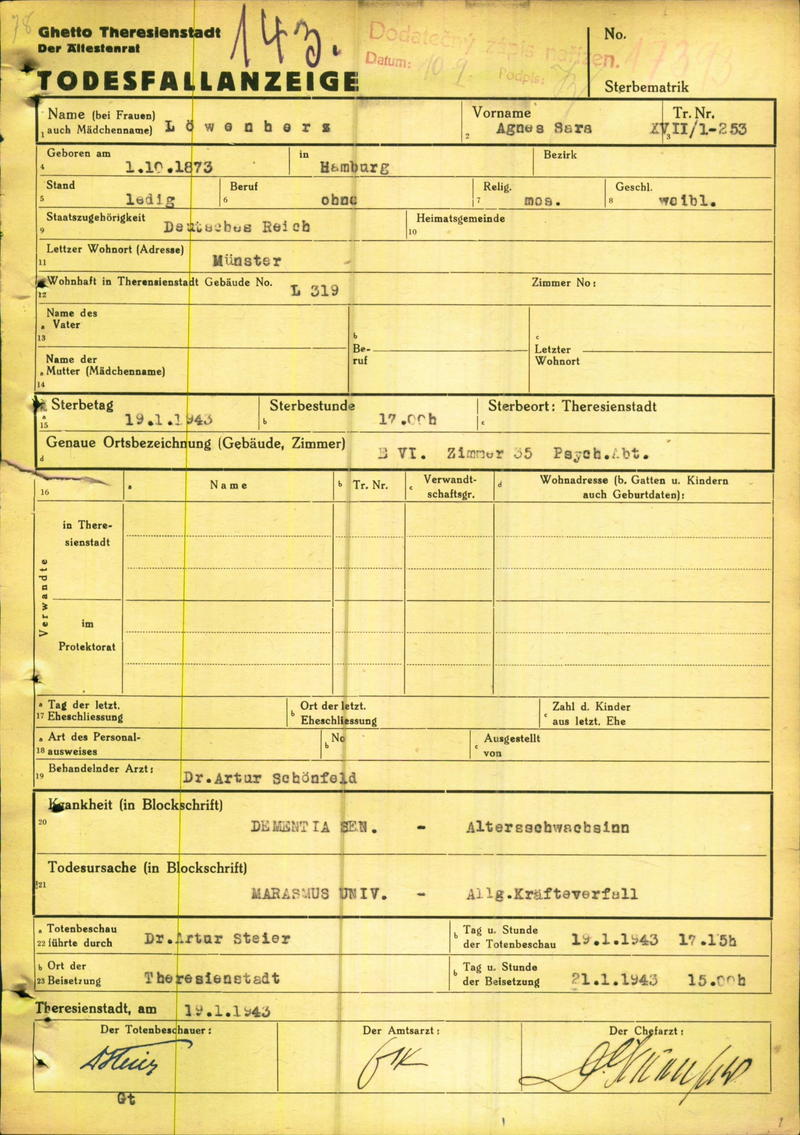 78
Ghetto Theresienstadt
Der Ältestenrat
143.
Dodatečný zápis nařízen.
Datum: 10 9. Podpis:
No. 17393
TODESFALLANZEIGE
Sterbematrik
Name (bei Frauen) Vorname Tr. Nr.
1 auch Mädchenname) Löwenberg 2 Agnes Sara 3 XVII/1-253
Geboren am in Bezirk
4 1.10.1873 Hamburg
Stand Beruf Relig. Geschl.
5 ledig 6 ohne 7 mos. 8 weibl.
Staatszugehörigkeit Heimatsgemeinde
9 Deutsches Reich 10
Lettzer Wohnort (Adresse)
11 Münster
Wohnhaft in Theresienstadt Gebäude No. L 319 Zimmer No:
12
Name des
a Vater
13
b Be-ruf
c Letzter Wohnort
Name der
a Mutter (Mädchenname)
14
Sterbetag Sterbestunde Sterbeort: Theresienstadt
a 15 19.1.1943 b 17.00h c
Genaue Ortsbezeichnung (Gebäude, Zimmer)
d E VI. Zimmer 35 Psych.Abt.
16 a Name b Tr. Nr. c Verwandt-schaftsgr. d Wohnadresse (b. Gatten u. Kindern
auch Geburtdaten):
Verwandte
in There-
sienstadt
im
Protektorat
a Tag der letzt. Ort der letzt. Zahl d. Kinder
17 Eheschliessung b Eheschliessung c aus letzt. Ehe
a Art des Personal- b No Ausgestellt
18 ausweises c von
Behandelnder Arzt:
19 Dr.Artur Schönfeld
Krankheit (in Blockschrift)
20 DEMENTIA SEN. - Altersschwachsinn
Todesursache (in Blockschrift)
21 MARASMUS UNIV. - Allg.Kräfteverfall
a Totenbeschau b Tag u. Stunde
22 führte durch Dr.Artur Steier der Totenbeschau 19.1.1943 17.15h
b Ort der b Tag u. Stunde
23 Beisetzung Theresienstadt der Beisetzung 21.1.1943 15.00h
Theresienstadt, am 19.1.1943
Der Totenbeschauer: Der Amtsarzt: Der Chefarzt:
Gt